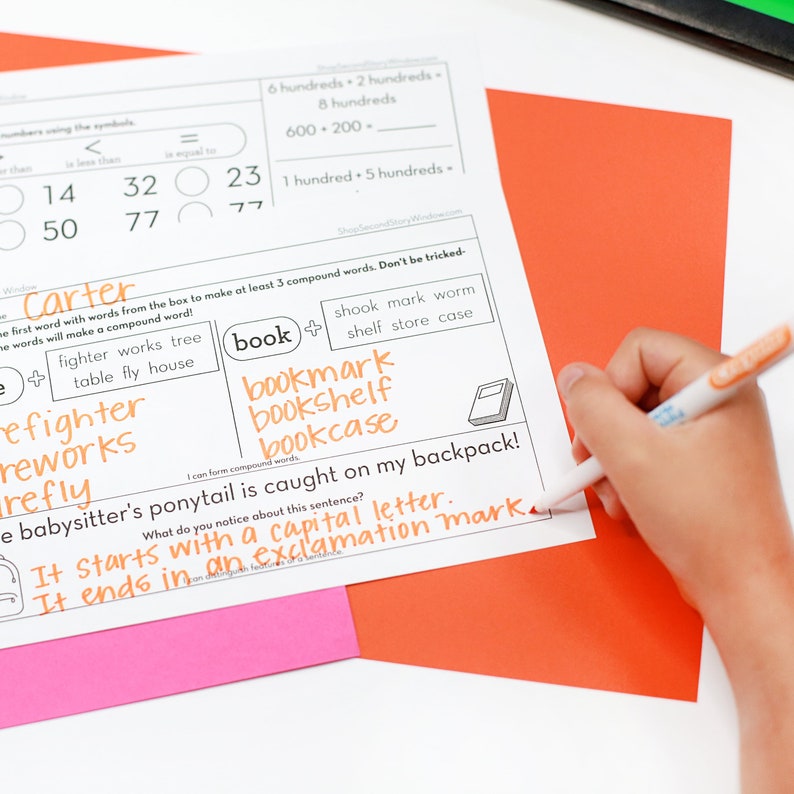 ShopSecondStoryWindow.com
Window
numbers using the symbols.
than < =
is less than is equal to
14 32 23
50 77 77
6 hundreds + 2 hundreds =
8 hundreds
600 + 200 =
1 hundred + 5 hundreds =
ShopSecondStoryWindow.com
Window
Carter
first word with words from the box to make at least 3 compound words. Don't be tricked-
words will make a compound word!
e + fighter works tree
table fly house
refighter
reworks
irefly
book + shook mark worm
shelf store case
bookmark
bookshelf
bookcase
I can form compound words.
e babysitter's ponytail is caught on my backpack!
What do you notice about this sentence?
It starts with a capital letter.
It ends in an exclamation mark.
I can distinguish features of a sentence.